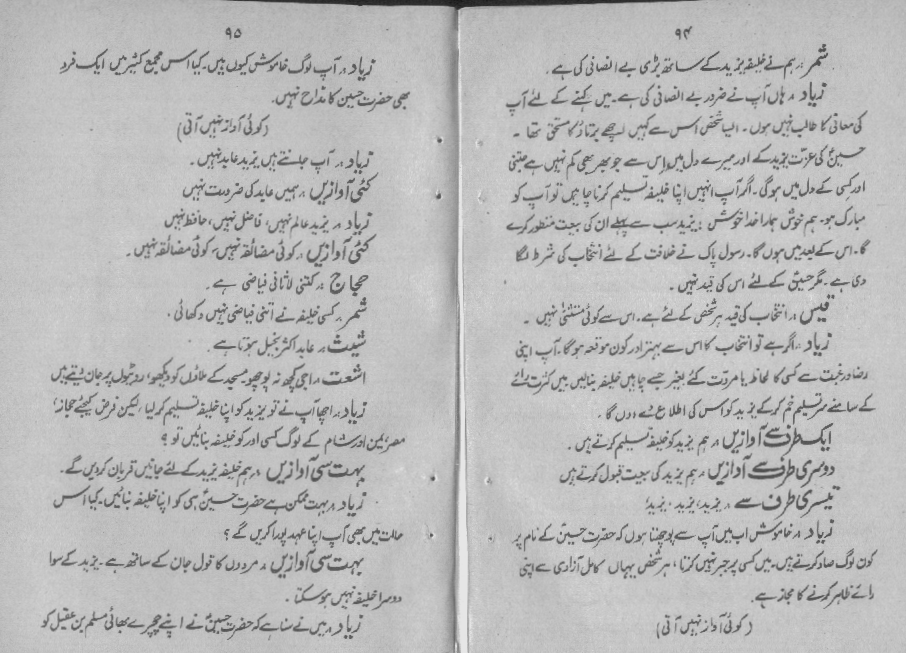 ۹۴
شمر :۔ ہم نے خلیفہ یزید کے ساتھ بڑی بے انصافی کی ہے۔
زیاد :۔ ہاں آپ نے ضرور بے انصافی کی ہے۔ میں کہنے کے لئے آپ
کی معافی کا طالب نہیں ہوں۔ ایسا شخص اس سے کہیں اچھے برتاؤ کا مستحق تھا۔
حسینؑ کی عزت یزید کے اور میرے دل میں اس سے جو بھر بھی کم نہیں ہے جتنی
اور کسی کے دل میں ہوگی۔ اگر آپ انہیں اپنا خلیفہ تسلیم کرنا چاہیں تو آپ کو
مبارک ہو۔ ہم خوش ہمارا خدا خوش! یزید سب سے پہلے ان کی بیعت منظور کرے
گا۔ اس کے بعد میں ہوں گا۔ رسول پاک نے خلافت کے لئے انتخاب کی شرط لگا
دی ہے۔ مگر حسینؑ کے لئے اس کی قید نہیں۔
قیس :۔ انتخاب کی قید ہر شخص کے لئے ہے۔ اس سے کوئی مستثنیٰ نہیں۔
زیاد :۔ اگر ہے تو انتخاب کا اس سے بہتر اور کون موقعہ ہوگا۔ آپ اپنی
رضا و رغبت سے کسی کا لحاظ یا مروت کئے بغیر جسے چاہیں خلیفہ بنالیں میں کثرت رائے
کے سامنے سر تسلیم خم کر کے یزید کو اس کی اطلاع دے دوں گا۔
ایک طرف سے آوازیں :۔ ہم یزید کو خلیفہ تسلیم کرتے ہیں۔
دوسری طرف سے آوازیں :۔ ہم یزید کی بیعت قبول کرتے ہیں
تیسری طرف سے :۔ یزید! یزید! یزید!
زیاد :۔ خاموش اب میں آپ سے پوچھتا ہوں کہ حضرت حسینؑ کے نام پر
کون لوگ صاد کرتے ہیں۔ میں کسی پر جبر نہیں کرتا، ہر شخص یہاں کامل آزادی سے اپنی
رائے ظاہر کرنے کا مجاز ہے۔
(کوئی آواز نہیں آتی)
۹۵
زیاد :۔ آپ لوگ خاموش کیوں ہیں۔ کیا اس مجمع کثیر میں ایک فرد
بھی حضرت حسین کا مداح نہیں۔
(کوئی آواز نہیں آتی)
زیاد :۔ آپ جانتے ہیں یزید عابد نہیں۔
کئی آوازیں :۔ ہمیں عابد کی ضرورت نہیں
زیاد :۔ یزید عالم نہیں، فاضل نہیں، حافظ نہیں
کئی آوازیں :۔ کوئی مضائقہ نہیں۔ کوئی مضائقہ نہیں۔
حجاج :۔ کتنی لاثانی فیاضی ہے۔
شمر :۔ کسی خلیفہ نے اتنی فیاضی نہیں دکھائی۔
شیث :۔ عابد اکثر بخیل ہوتا ہے۔
اشعث :۔ اجی کچھ نہ پوچھو۔ مسجد کے ملاؤں کو دیکھو، روٹیوں پر جان دیتے ہیں
زیاد :۔ اچھا آپ نے تو یزید کو اپنا خلیفہ تسلیم کر لیا، لیکن فرض کیجئے حجاز،
مصر، یمن اور شام کے لوگ کسی اور کو خلیفہ بنائیں تو؟
بہت سی آوازیں :۔ ہم خلیفہ یزید کے لئے جانیں قربان کر دیں گے۔
زیاد :۔ بہت ممکن ہے حضرت حسینؑ ہی کو اپنا خلیفہ بنائیں۔ کیا اس
حالت میں بھی آپ اپنا عہد پورا کریں گے؟
بہت سی آوازیں :۔ مردوں کا قول جان کے ساتھ ہے۔ یزید کے سوا
دوسرا خلیفہ نہیں ہو سکتا۔
زیاد :۔ میں نے سنا ہے کہ حضرت حسینؑ نے اپنے چچیرے بھائی مسلم بن عقیل کو